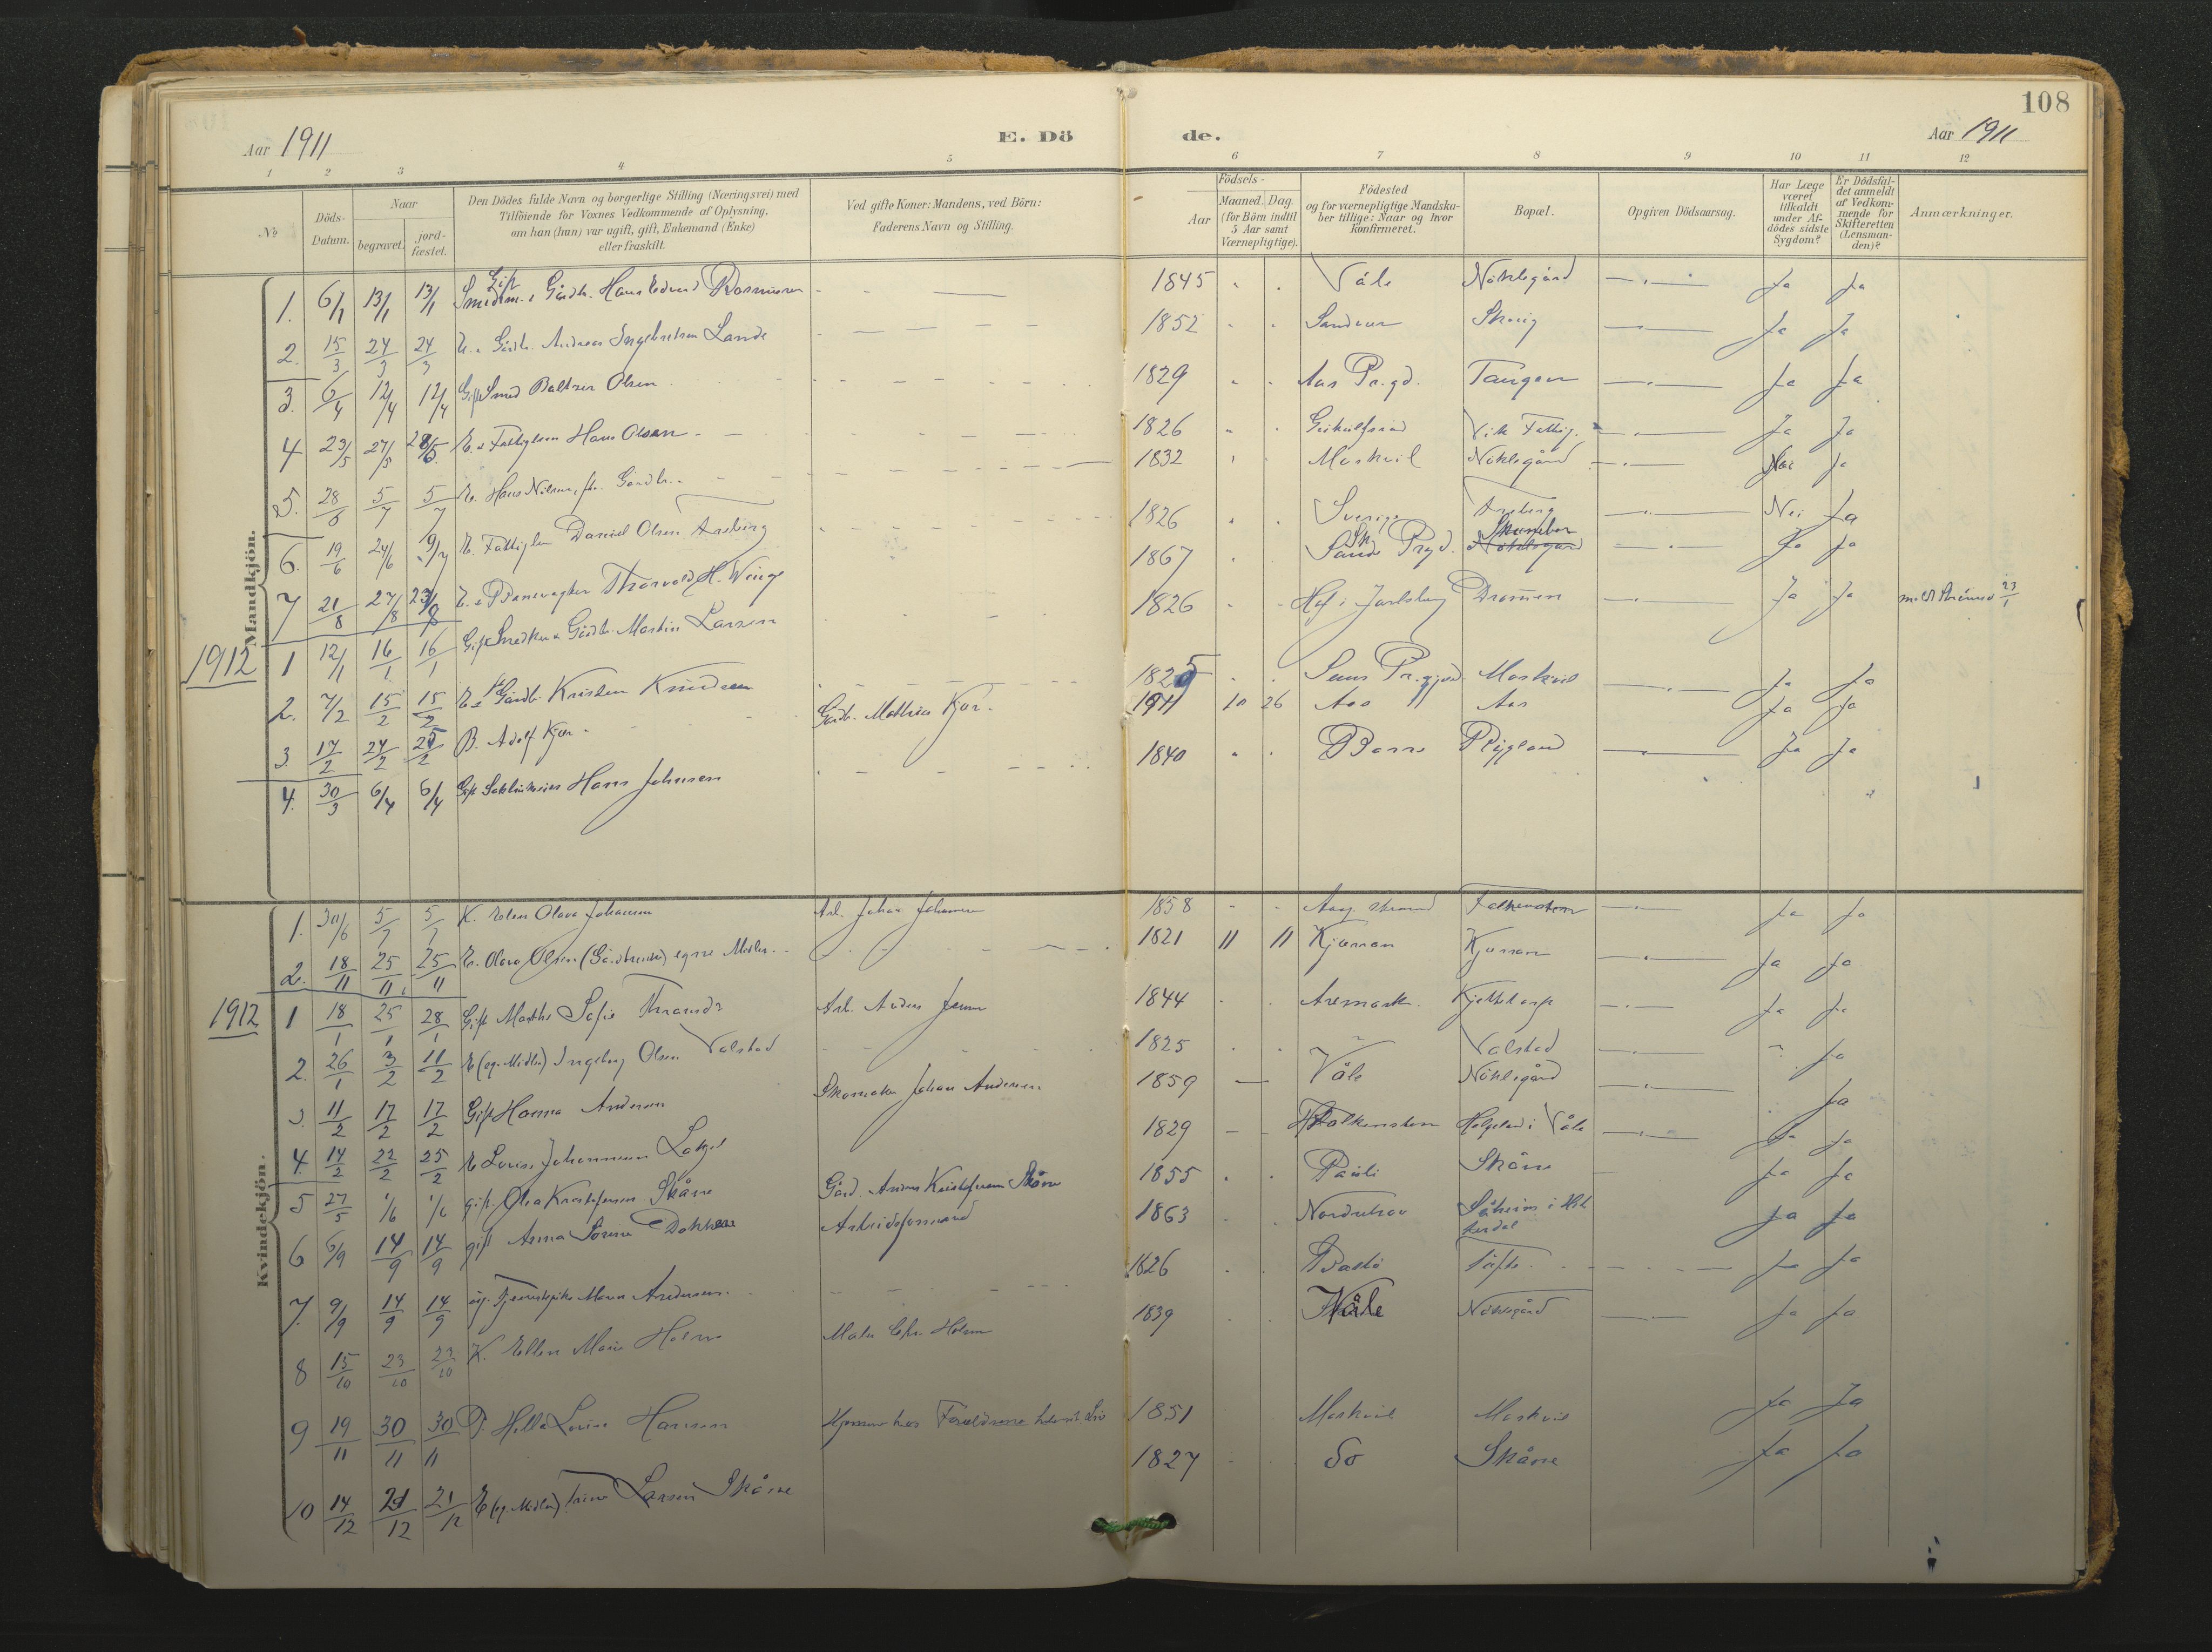 108
Aar 1911 E. Dö de. Aar 1911
1 2 3 4 5 6 7 8 9 10 11 12
No
Döds-Datum.
Naar
begravet. jord-fæstet.
Den Dödes fulde Navn og borgerlige Stilling (Næringsvei) med
Tilföiende for Voxnes Vedkommende af Oplysning,
om han (hun) var ugift, gift, Enkemand (Enke)
eller fraskilt.
Ved gifte Koner: Mandens, ved Börn:
Faderens Navn og Stilling.
Födsels-
Aar Maaned. Dag.
(for Börn indtil
5 Aar samt
Værnepligtige).
Födested
og for værnepligtige Mandska-
ber tillige: Naar og hvor
Konfirmeret.
Bopæl.
Opgiven Dödsaarsag.
Har Læge
været
tilkaldt
under Af-
dödes sidste
Sygdom?
Er Dödsfal-
det anmeldt
af Vedkom-
mende for
Skifteretten
(Lensman-
den)?
Anmærkninger.
Mandkjön.
1. 6/1 13/1 13/1 Gift Smedm. & Gårdb. Hans Edvard Rasmussen 1845 Våle Nöklegård Ja Ja
2. 15/3 24/3 24/3 E. Gårdb. Andreas Ingebretsen Lande 1852 Ja Ja
3. 6/4 12/4 12/4 Gift Smed Baltser Olsen 1829 Aas Pr.gd. Tangen Ja Ja
4 23/5 27/5 E. Fattiglem Hans Olsen 1826 Vik Fattig. Ja Ja
5. 28/6 5/7 5/7 E. Hans Nilsen, Gårdb. 1832 Moskvil Nöklegård Nei Ja
6. 19/6 24/6 9/7 E. Fattiglem Daniel Olsen Aasberg 1826 Sverige Nei Ja
7 21/8 27/8 E. Banevogter Thorvald H. Winge 1867 Sande Prgd. Nöklegård Ja Ja
1912
1 12/1 16/1 16/1 Gift Smedm. & Gårdb. Martin Larsen 1826 Hof i Jarlsberg Drammen Ja Ja
2. 7/2 15/2 15/2 E. Gårdb. Kristen Knudsen 1825 Moskvil Ja Ja
3. 17/2 24/2 25/2 B. Adolf Kjær Gårdb. Mathias Kjær. 1911 10 26 Aas Aas Ja Ja
4. 30/3 6/4 6/4 Gift Hans Johnsen 1840 Borre Ja Ja
Kvindekjön.
1. 30/6 5/7 5/7 K. Elen Olava Johansen Arb. Johan Johansen 1858 Falkensten Ja Ja
2. 18/11 25/11 25/11 E. Olava Olsen egne Midler 1821 11 11 Kjærran Kjærran Ja Ja
1912
1 18/1 25/1 28/1 Gift Marthe Sofie Arb. Anders 1844 Aremark Ja Ja
2. 26/1 3/2 11/2 E (eg. Midler) Ingeborg Olsen Valstad 1825 Valstad Ja
3. 11/2 17/2 17/2 Gift Hanna Andersen Skomaker Johan Andersen 1859 Våle Nöklegård Ja
4. 14/2 22/2 25/2 E Lovise Johannesen 1829 Falkensten Helgeland i Våle Ja Ja
5 27/5 1/6 1/6 gift. Olea Kristofersen Skåne Gård. Anders Kristofersen Skåne 1855 Skåne Ja Ja
6 6/9 14/9 14/9 gift Anna Sörine Dokken Arbeidsformand 1863 Ja Ja
7. 9/9 14/9 14/9 ug. Tjenestepike Maren Andersen. 1826 Bastö Ja Ja
8 15/10 23/10 23/10 K. Ellen Marie Holm Maler Chr. Holm 1839 Våle Nöklegård Ja Ja
9 19/11 30/11 30/11 P. Hilda Lovise Hansen Hjemme hos Forældrene 1851 Moskvil Moskvil Ja Ja
10 14/12 21/12 21/12 E (eg. Midler) Trine Larsen Skåne 1827 Do Skåne Ja Ja